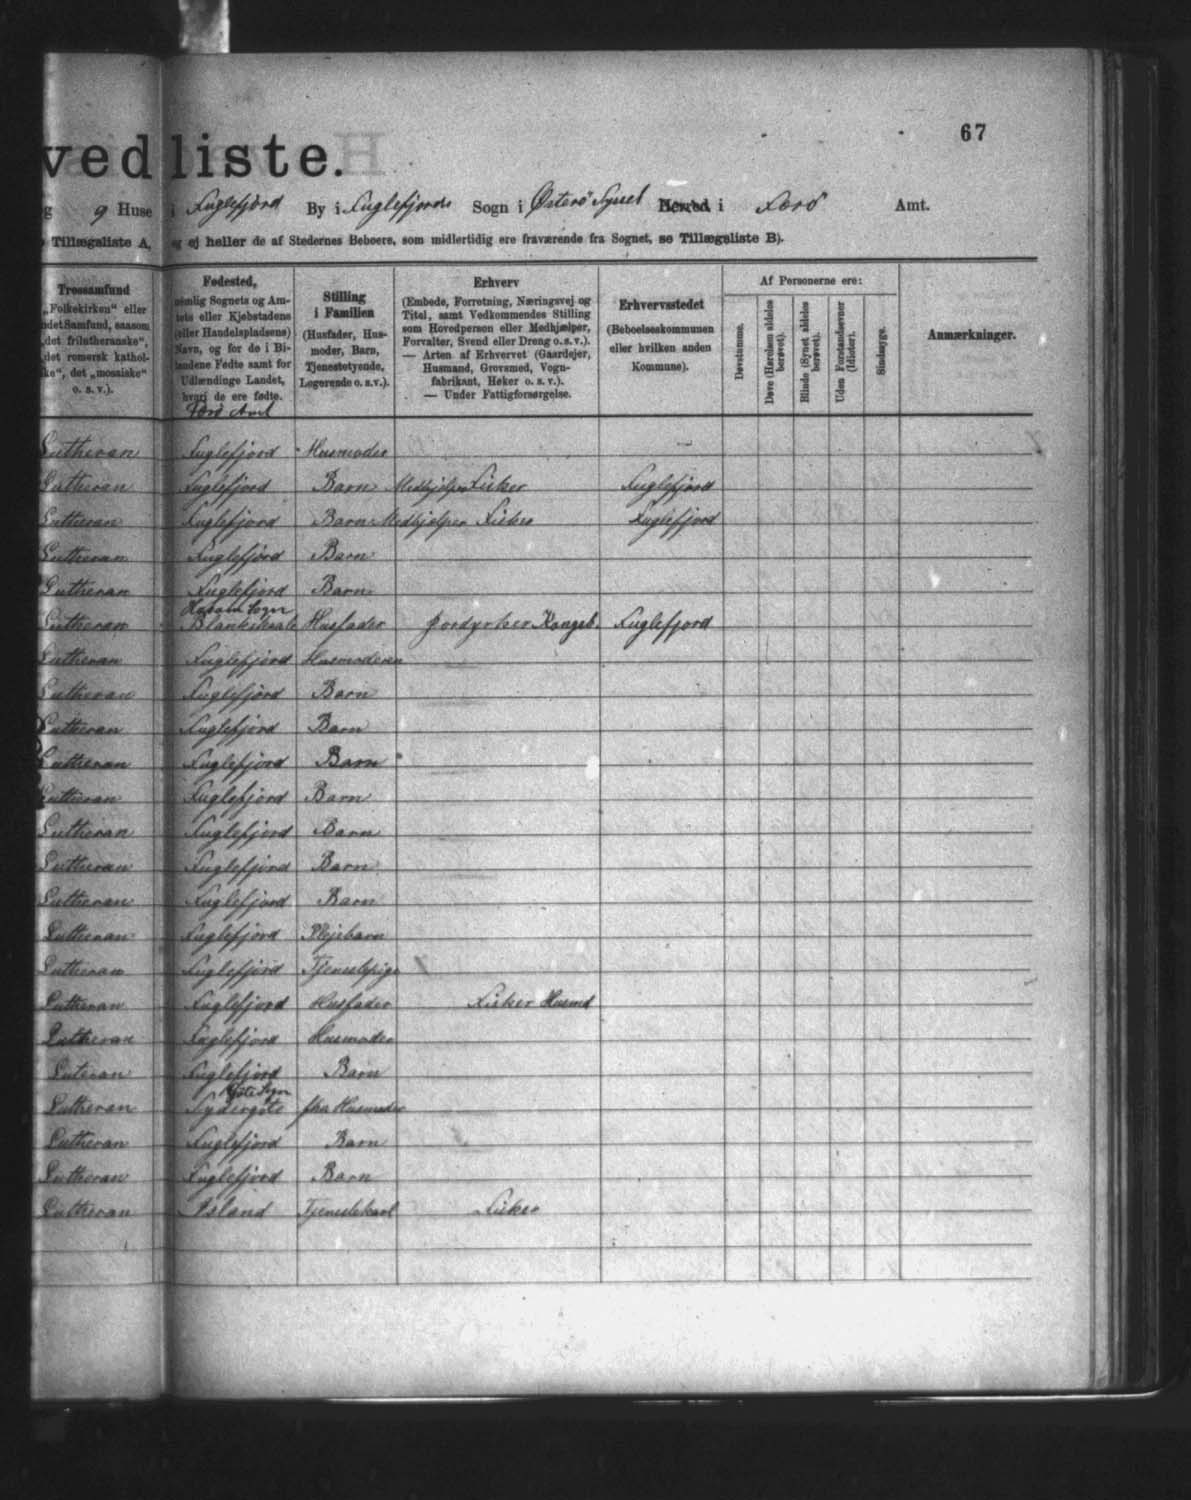 67
vedliste.
g 9 Huse i Fuglefjord By i Fuglefjords Sogn i Østerø Syssel Herred i Færø Amt.
Tillægsliste A, og ej heller de af Stedernes Beboere, som midlertidig ere fraværende fra Sognet, se Tillægsliste B).
Trossamfund
„Folkekirken" eller
ndet Samfund, saasom
„det frilutheranske",
„det romersk kathol-
ke", det „mosaiske"
o. s. v.).
Fødested,
nemlig Sognets og Am-
tets eller Kjøbstadens
(eller Handelspladsens)
Navn, og for de i Bi-
landene Fødte samt for
Udlændinge Landet,
hvori de ere fødte.
Færø Amt
Stilling
i Familien
(Husfader, Hus-
moder, Barn,
Tjenestetyende,
Logerende o. s. v.).
Erhverv
(Embede, Forretning, Næringsvej og
Titel, samt Vedkommendes Stilling
som Hovedperson eller Medhjælper,
Forvalter, Svend eller Dreng o. s. v.).
— Arten af Erhvervet (Gaardejer,
Husmand, Grovsmed, Vogn-
fabrikant, Høker o. s. v.).
— Under Fattigforsørgelse.
Erhvervsstedet
(Beboelseskommunen
eller hvilken anden
Kommune).
Af Personerne ere:
Døvstumme.
Døve (Hørelsen aldeles
berøvet).
Blinde (Synet aldeles
berøvet).
Uden Forstandsevner
(Idioter).
Sindssyge.
Anmærkninger.
Lutheran Fuglefjord Husmoder
Lutheran Fuglefjord Barn Medhjelper Fisker Fuglefjord
Lutheran Fuglefjord Barn Medhjelper Fisker Fuglefjord
Lutheran Fuglefjord Barn
Lutheran Fuglefjord Barn
Sogn
Lutheran Husfader Jordyrker Kongsb. Fuglefjord
Lutheran Fuglefjord Husmoderen
Lutheran Fuglefjord Barn
Lutheran Fuglefjord Barn
Lutheran Fuglefjord Barn
Lutheran Fuglefjord Barn
Lutheran Fuglefjord Barn
Lutheran Fuglefjord Barn
Lutheran Fuglefjord Barn
Lutheran Fuglefjord Plejebarn
Lutheran Fuglefjord Tjenestepige
Lutheran Fuglefjord Husfader Fisker Husmd
Lutheran Fuglefjord Husmoder
Luteran Fuglefjord Barn
Gøte Sogn
Lutheran Sydergøte Husmoder
Lutheran Fuglefjord Barn
Lutheran Fuglefjord Barn
Lutheran Island Tjenestekarl Fisker